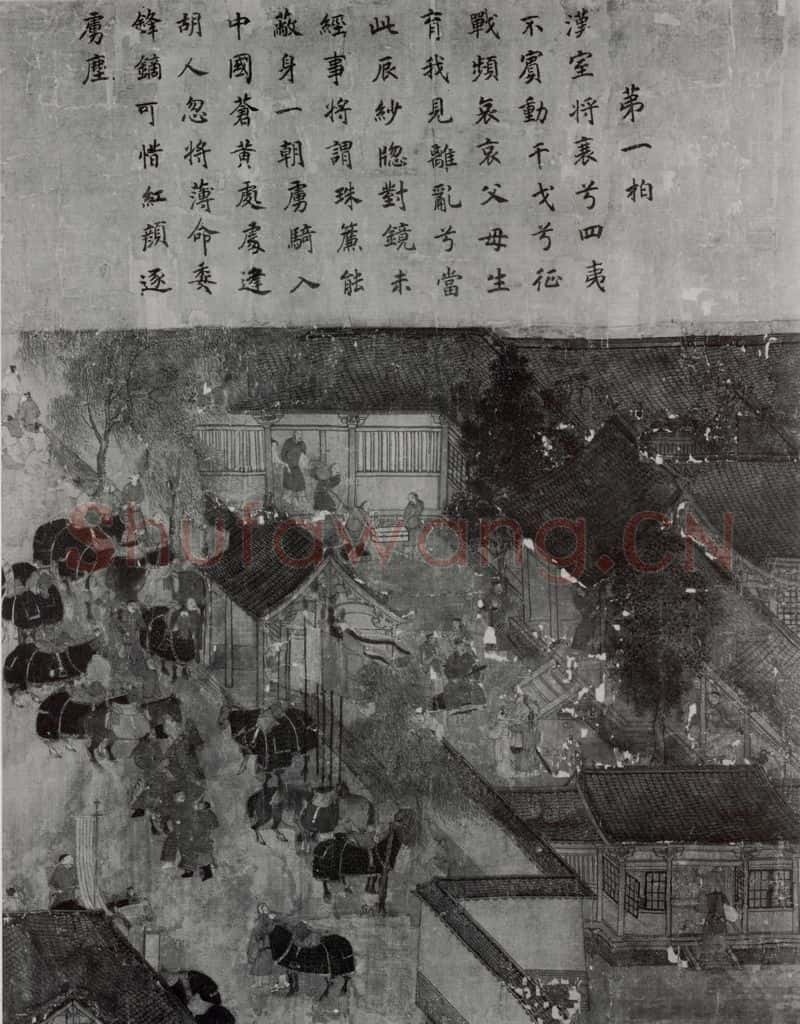 苐一拍
漢室将衰兮四夷
不賓動干戈兮征
戰頻哀哀父母生
育我見離亂兮當
此辰紗牕對鏡未
經事将謂珠簾能
蔽身一朝虜騎入
中國蒼黃處處逢
胡人忽将薄命委
鋒鏑可惜紅顔逐
虜塵
Shufawang.CN